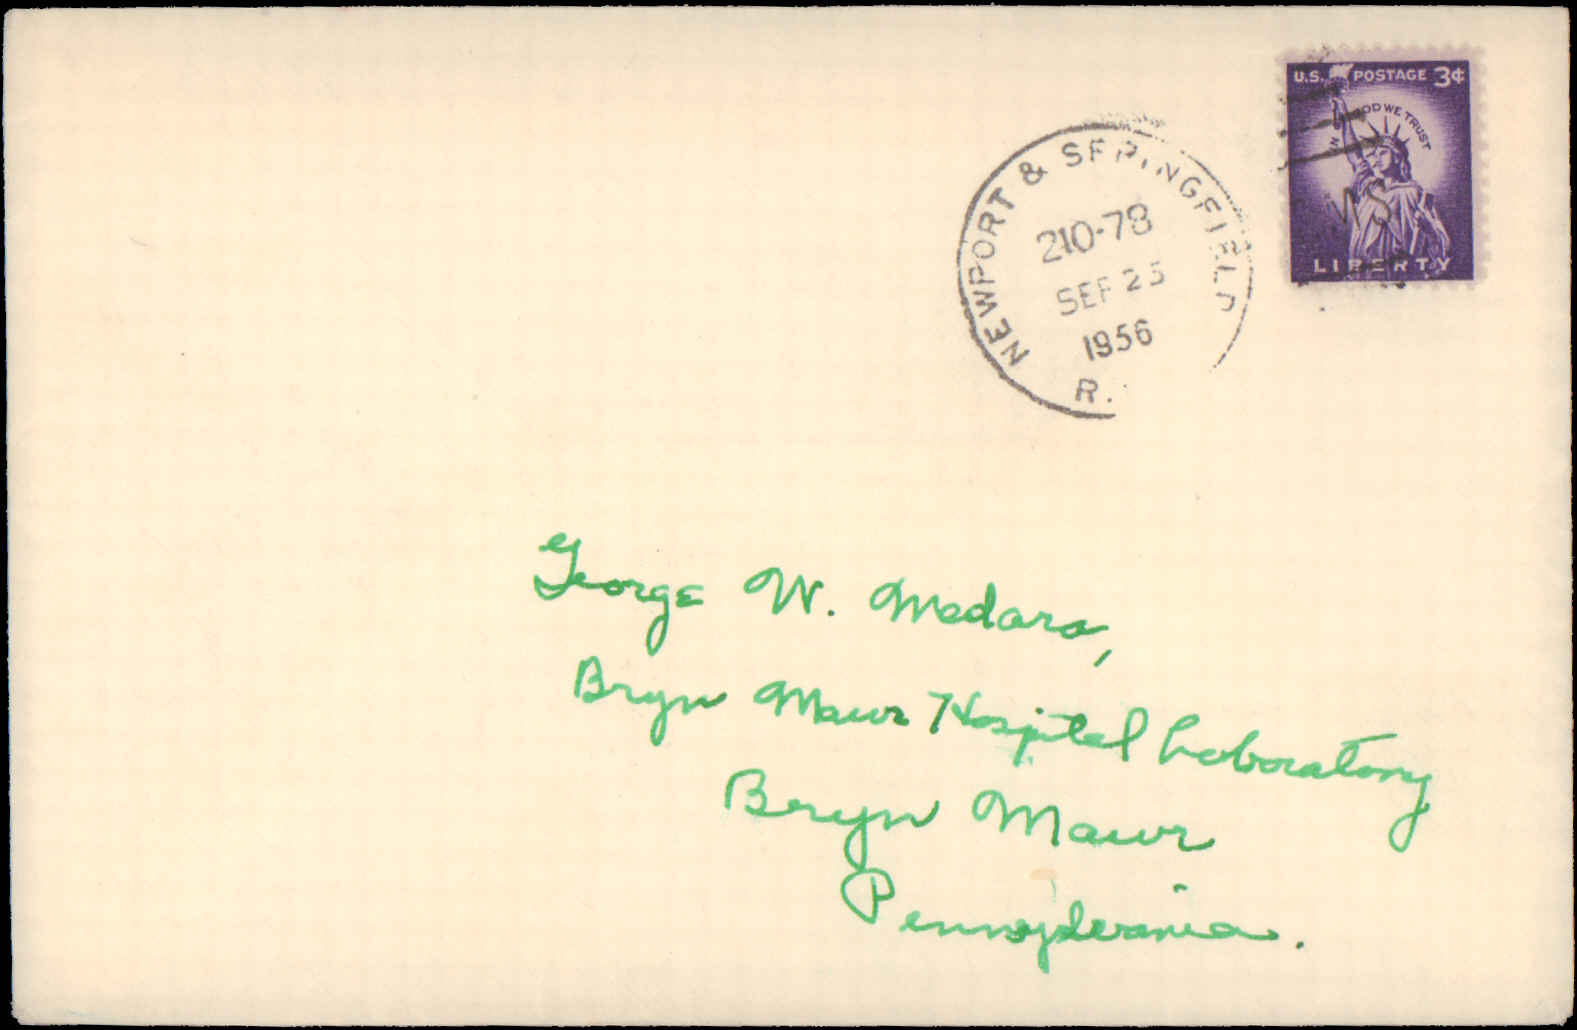 U.S. POSTAGE 3¢
IN GOD WE TRUST
LIBERTY
NEWPORT & SPRINGFIELD
210-78
SEP 25
1956
R.
George W. Medara,
Bryn Mawr Hospital Laboratory
Bryn Mawr
Pennsylvania.